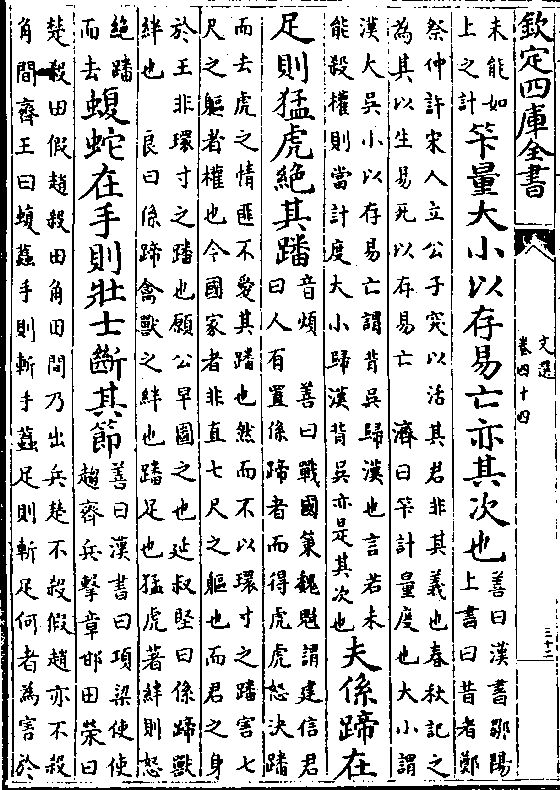 欽定四庫全書
文選
卷四十四
三十二
未能如上之計
筭量大小以存易亡亦其次也
善曰漢書鄒陽上書曰昔者鄭
祭仲許宋人立公子突以活其君非其義也春秋記之
為其以生易死以存易亡　濟曰筭計量度也大小謂
漢大吳小以存易亡謂背吳歸漢也言若未
能殺權則當計度大小歸漢背吳亦是其次也
夫係蹄在
足則猛虎絶其蹯
音煩　善曰戰國策魏魁謂建信君
曰人有置係蹄者而得虎虎怒決蹯
而去虎之情匪不愛其蹯也然而不以環寸之蹯害七
尺之軀者權也今國家者非直七尺之軀也而君之身
於王非環寸之蹯也願公早圖之也延叔堅曰係蹄獸
絆也　良曰係蹄禽獸之絆也蹯足也猛虎著絆則怒
絶蹯而去
蝮蛇在手則壯士斷其節
善曰漢書曰項梁使使
趣齊兵擊章邯田榮曰
楚殺田假趙殺田角田間乃出兵楚不殺假趙亦不殺
角間齊王曰蝮蠚手則斬手蠚足則斬足何者為害於